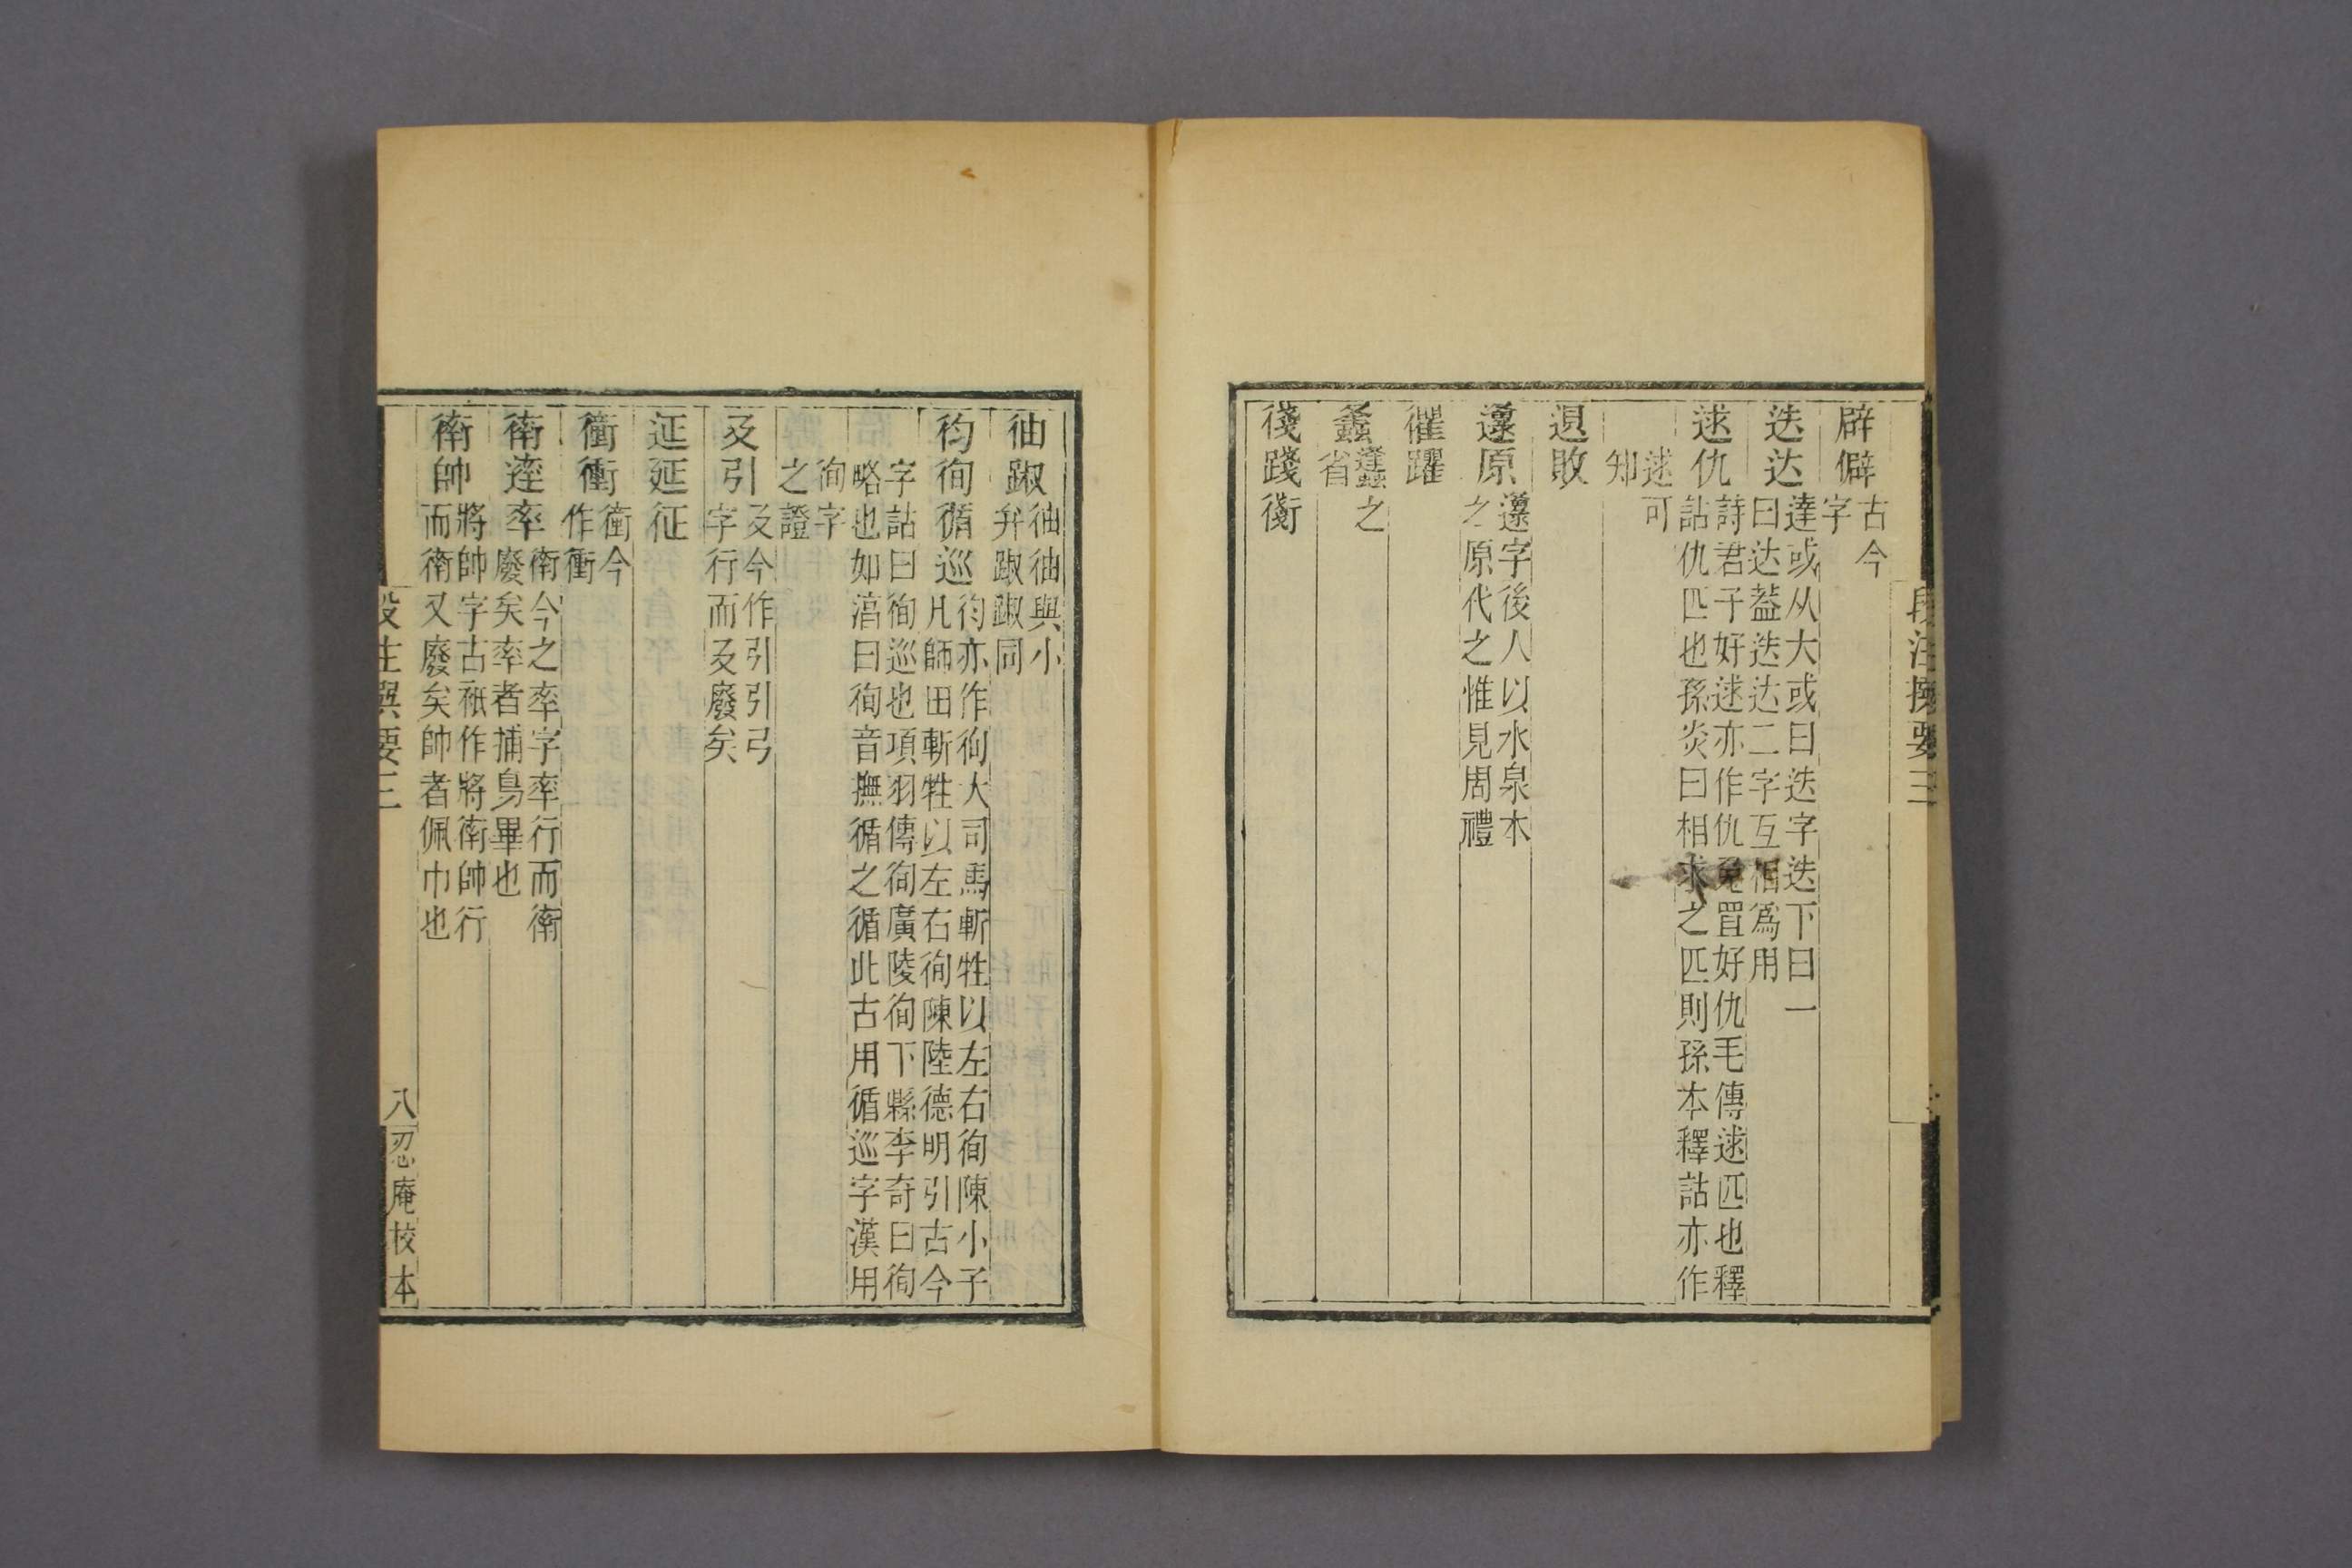 段注撰要三
辟僻古今
字
迭达達或从大或曰迭字迭下曰一
曰达葢迭达二字互相爲用
逑仇詩君子好逑亦作仇兔罝好仇毛傳逑匹也釋
詁仇匹也孫炎曰相求之匹則孫本釋詁亦作
逑可
知
退敗
邍原邍字後人以水泉本
之原代之惟見周禮
忂躍
䗬蠭之
省
後踐衜
㣙踧㣙㣙與小
弁踧踧同
袀徇循巡袀亦作徇大司馬斬牲以左右徇陳小子
凡師田斬牲以左右徇陳陸德明引古今
字詁曰徇巡也項羽傳徇廣陵徇下縣李奇曰徇
略也如淳曰徇音撫循之循此古用循巡字漢用
徇字
之證
廴引廴今作引引引弓
字行而廴廢矣
延延征
衝衝衝今
作衝
衛逹率衛今之率字率行而衛
廢矣率者捕鳥畢也
衛帥將帥字古衹作將衛帥行
而衛又廢矣帥者佩巾也
八
忍庵校本